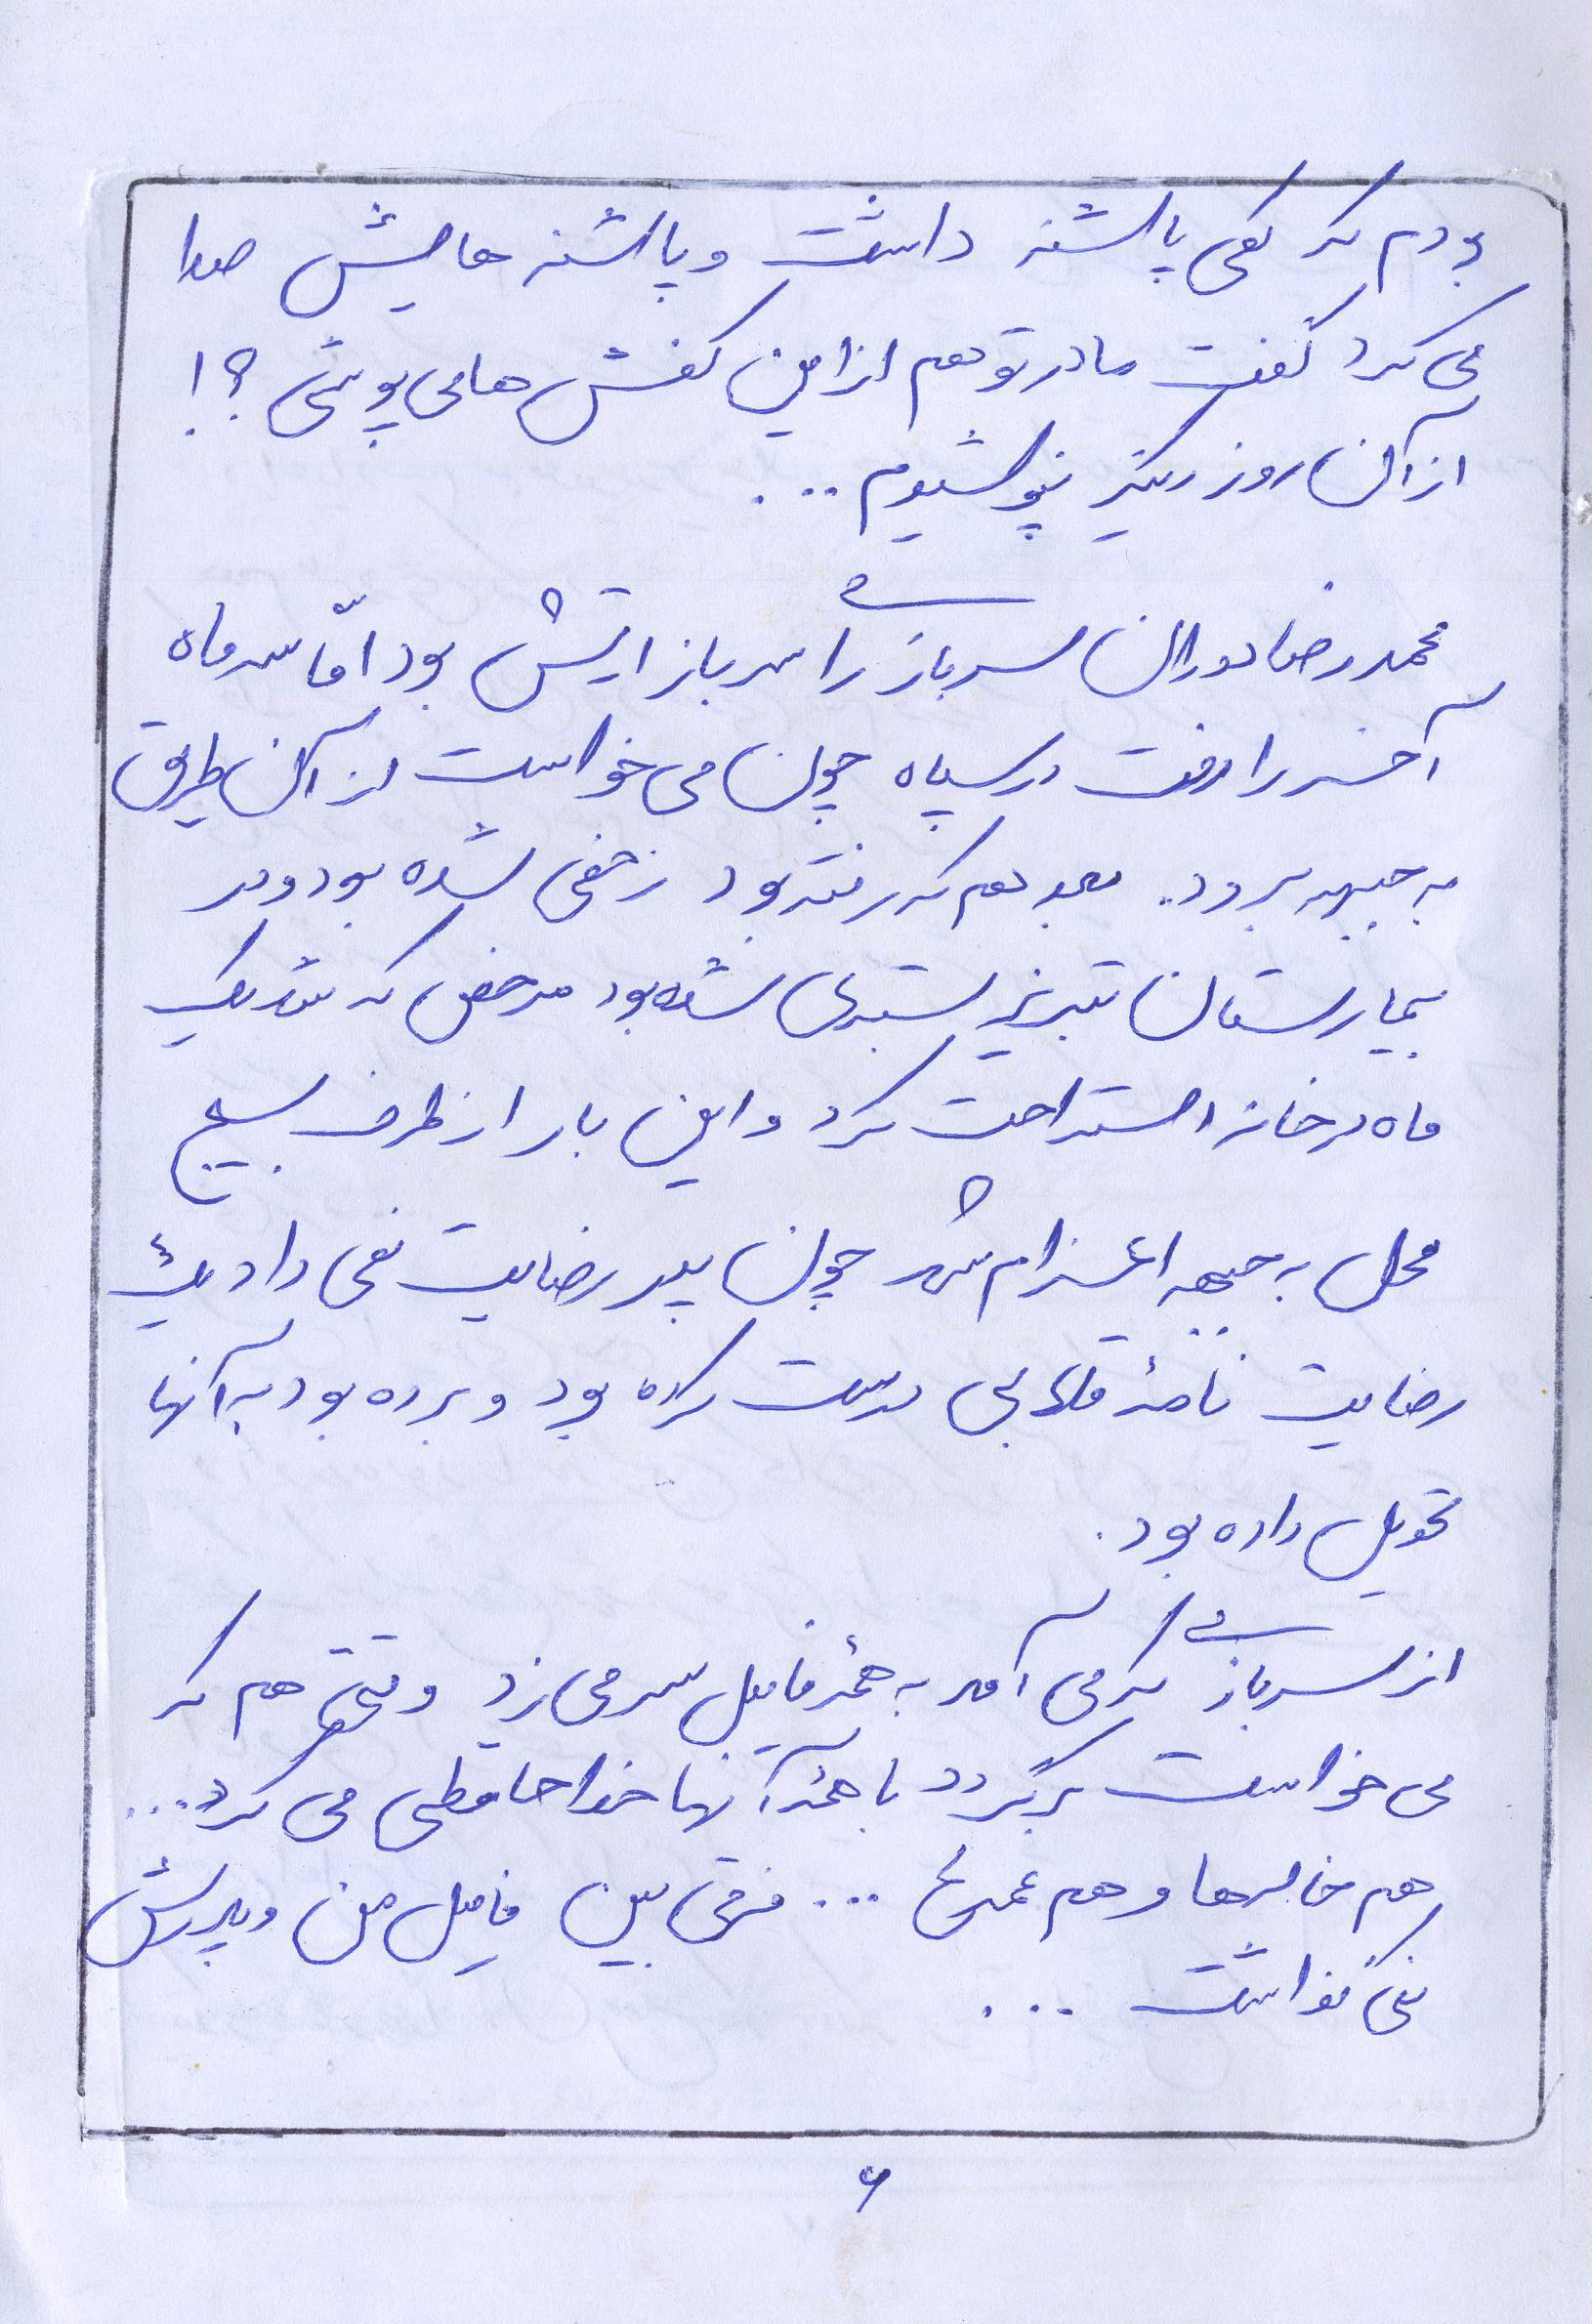 بودم که کمی پاشنه داشت و پاشنه هایش صدا
می کرد گفت مادر تو هم از این کفش ها می پوشی ؟!
از آن روز دیگر نپوشیدم ...
محمد رضا دوران سربازی را سرباز ارتش بود امّا سه ماه
آخر را رفت در سپاه چون می خواست از آن طریق
به جبهه برود. بعد هم که رفته بود زخمی شده بود و در
بیمارستان تبریز بستری شده بود مرخص که شد یک
ماه در خانه استراحت کرد و این بار از طرف بسیج
محل به جبهه اعزام شد چون پدر رضایت نمی داد یک
رضایت نامهٔ قلابی درست کرده بود و برده بود به آنها
تحویل داده بود.
از سربازی که می آمد به همهٔ فامیل سر می زد وقتی هم که
می خواست برگردد با همهٔ آنها خداحافظی می کرد...
هم خاله ها و هم عمه ها ... فرقی بین فامیل من و پدرش
نمی گذاشت ...
۶